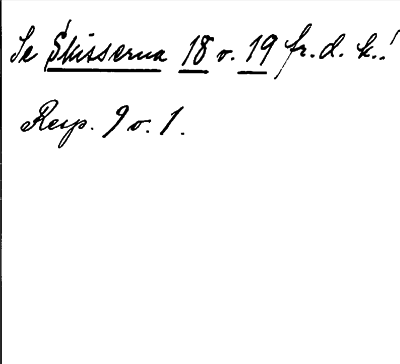 Se Skisserna 18 o. 19 fr. d. k.!
Resp. 9 o. 1.